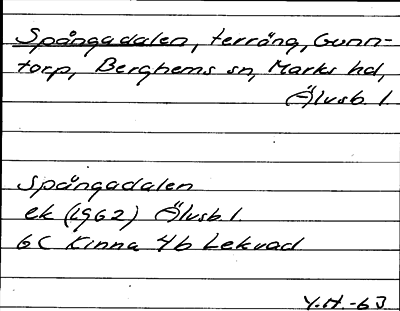 Spångadalen, terräng, Gunn-
torp, Berghems sn, Marks hd,
Älvsb. l.
Spångadalen
ek (1962) Älvsb l.
6C Kinna 4b Lekvad
Y.H.-63